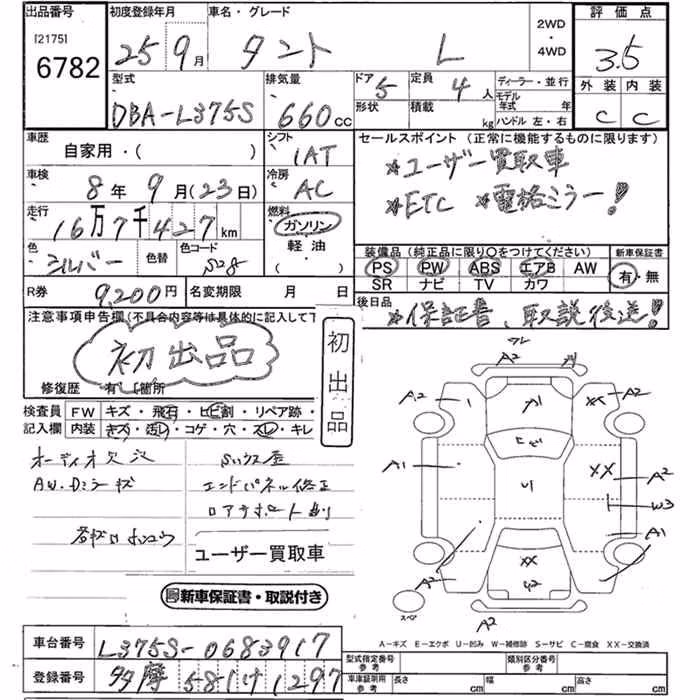 出品番号 初度登録年月 車名・グレード 評価点
[2175] 6782
25 9月 タント L 2WD・4WD 3.5
型式 排気量 ドア 定員 ディーラー・並行 外装 内装
DBA-L375S 660cc 5 4人 モデル年式 年 C C
形状 積載 kg ハンドル 左・右
車歴 シフト セールスポイント (正常に機能するものに限ります)
自家用・( ) IAT ※ユーザー買取車
車検 冷房 ※ETC ※電格ミラー!
8年 9月(23日) AC
走行 燃料
16万7千427km ガソリン
色 色替 色コード 軽油
シルバー S28 ・( )
装備品(純正品に限り○をつけてください) 新車保証書
PS PW ABS エアB AW 有・無
SR ナビ TV カワ
R券 9,200円 名変期限 月 日
後日品 ※保証書、取説後送!
注意事項申告欄(不具合内容等は具体的に記入して下
初出品 初出品
修復歴 有 [箇所
検査員記入欄 FW キズ・飛石・ヒビ割・リペア跡・
内装 キズ・汚レ・コゲ・穴・スレ・キレ
オーディオ欠品
AW.Dミラーキズ エンドパネル修正
ロアサポート
ユーザー買取車
新車保証書・取説付き
ワレ
A2
A2 A1 ××A2
ヒビ
A1 U ×× A2
W3
A1
A2 ××
U2
A2
スペア
A-キズ E-エクボ U-凹み W-補修跡 S-サビ C-腐食 XX-交換済
車台番号 L375S-0683917
登録番号 多摩 581 け 1297
型式指定番号 参考 類別区分番号 参考
車庫証明用 参考 長さ cm 幅 cm 高さ cm